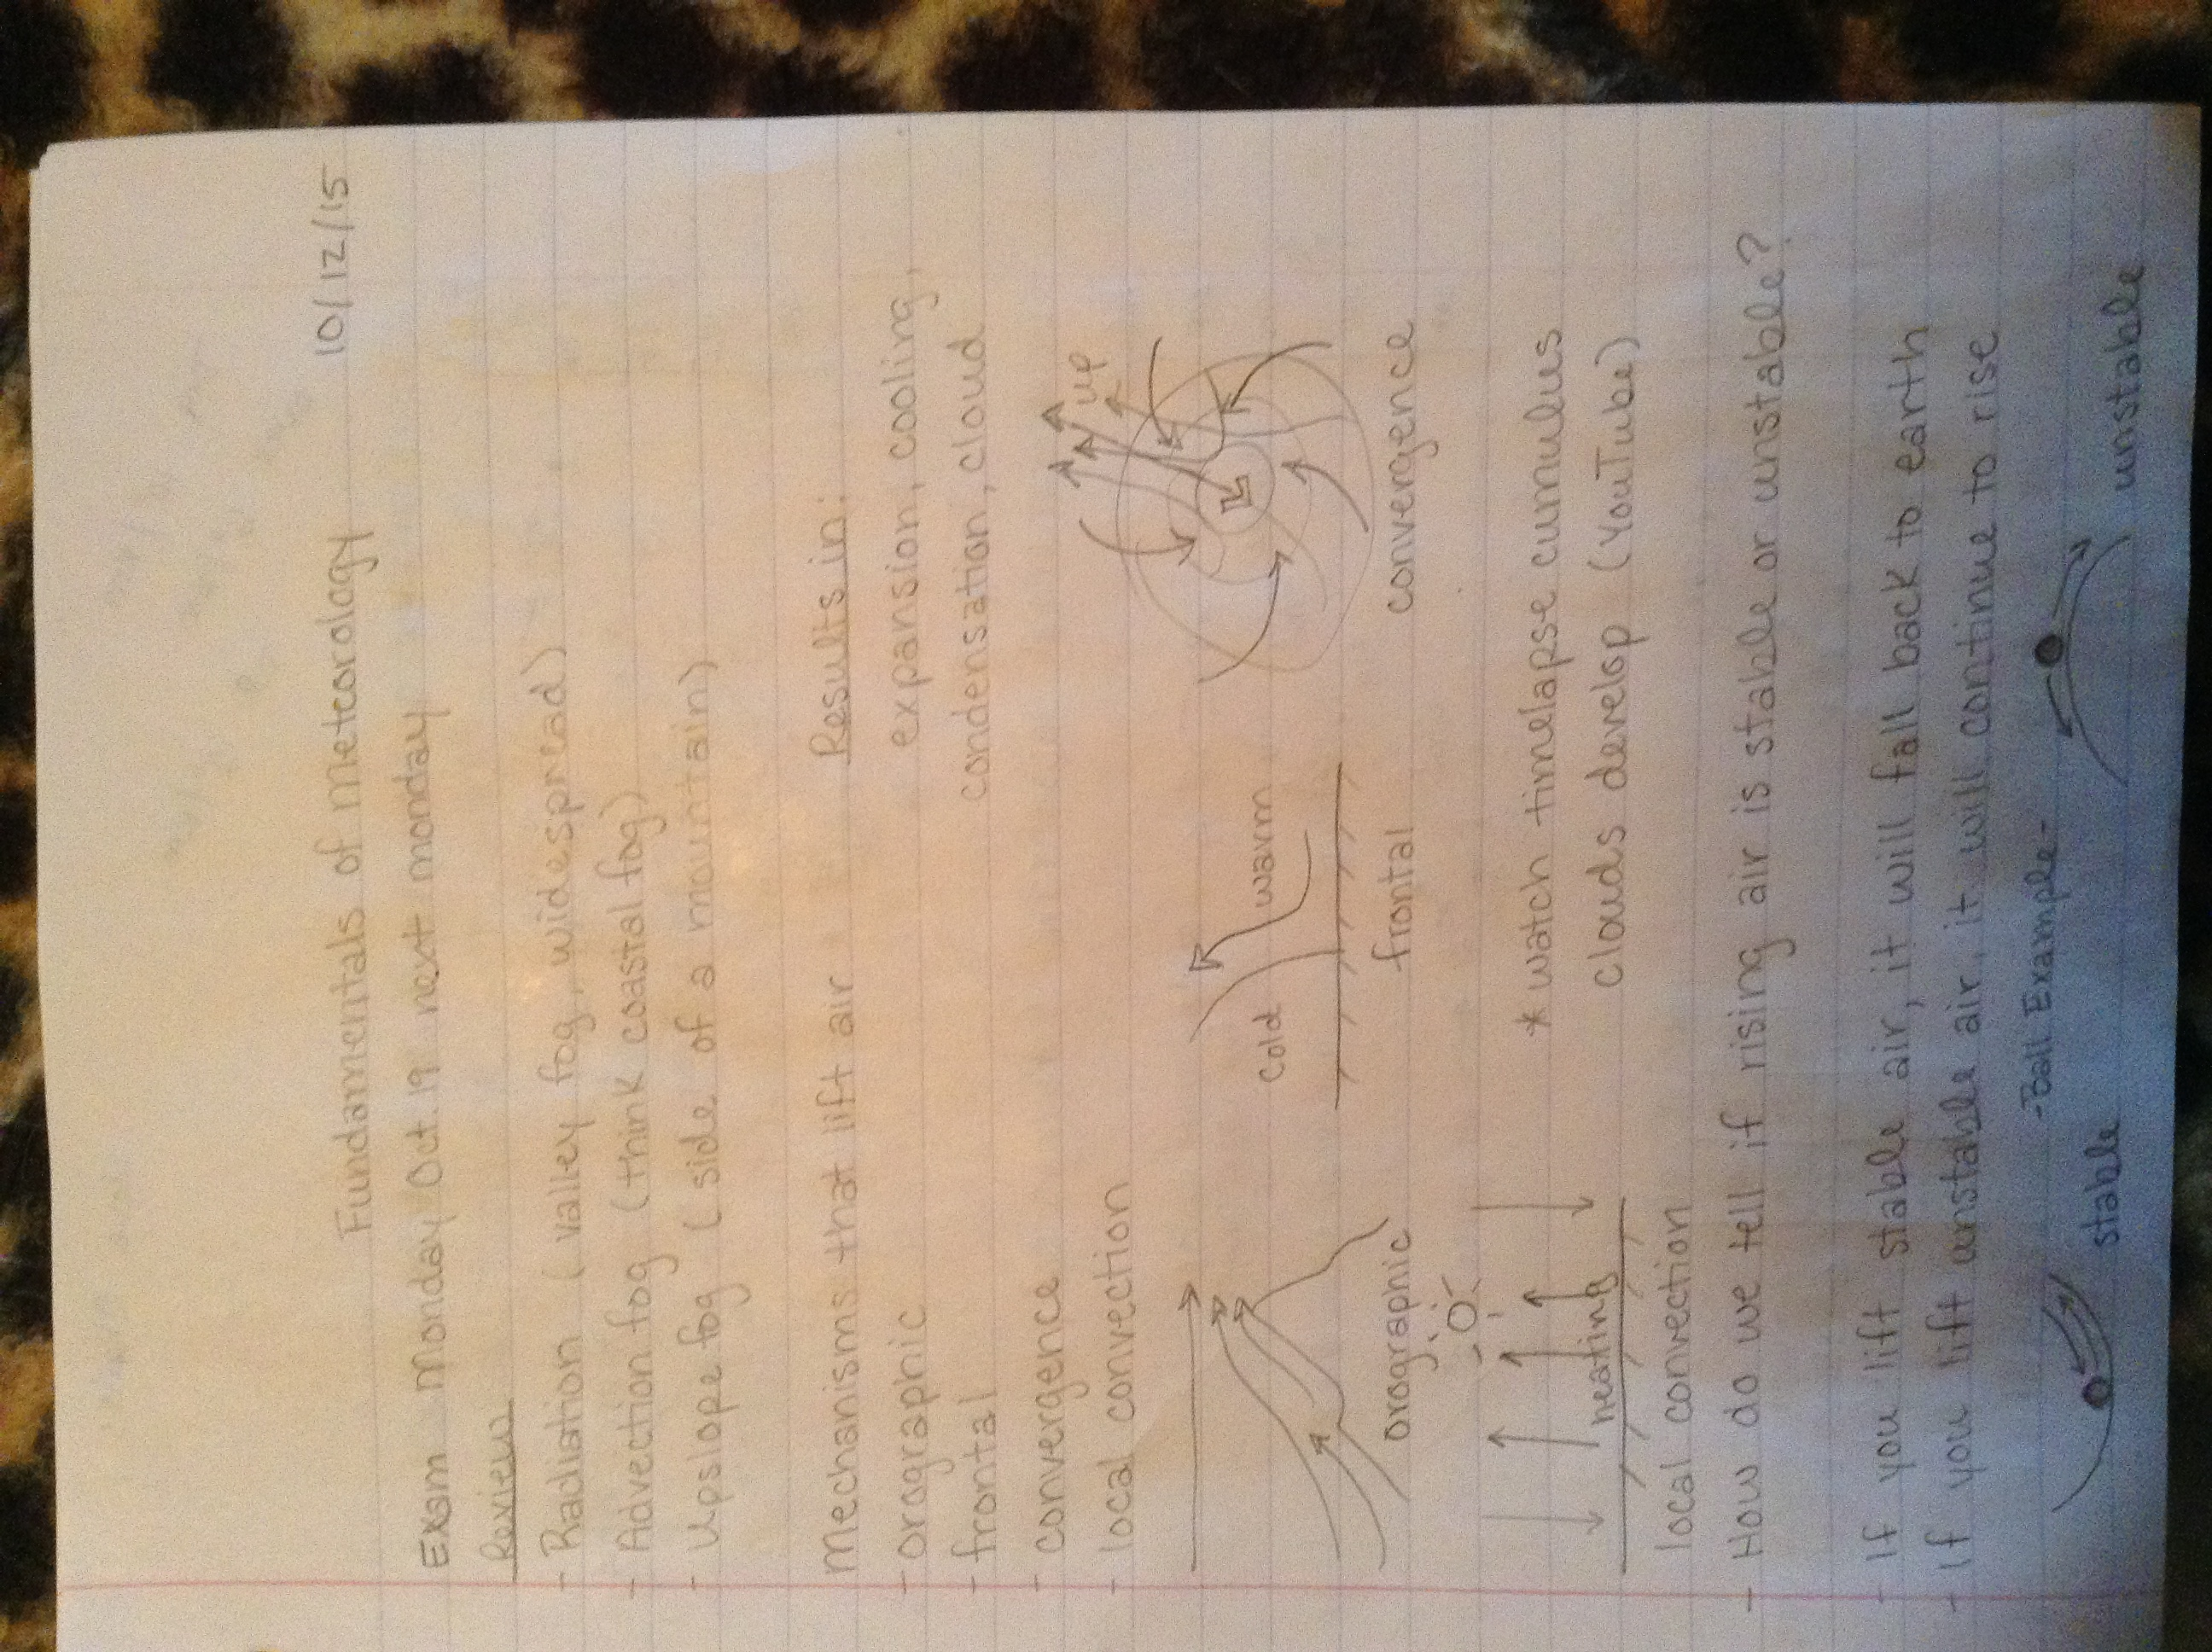 10/12/15
Fundamentals of Meteorology
Exam Monday Oct. 19 next monday
Review
- Radiation (valley fog, widespread)
- Advection fog (think coastal fog)
- Upslope fog (side of a mountain)
Mechanisms that lift air
- orographic
- frontal
- convergence
- local convection
Results in:
expansion, cooling,
condensation, cloud
orographic
cold
warm
frontal
up
convergence
heating
local convection
* watch timelapse cumulus
clouds develop (YouTube)
- How do we tell if rising air is stable or unstable?
- If you lift stable air, it will fall back to earth
- If you lift unstable air, it will continue to rise
-Ball Example-
stable
unstable